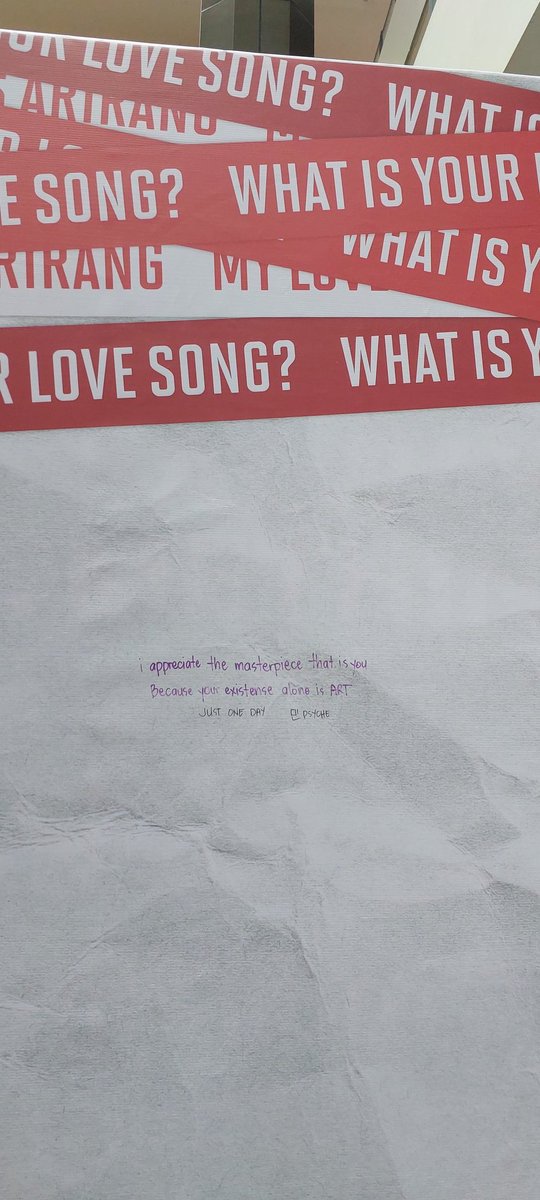 OUR LOVE SONG? WHAT IS
ARIRANG
E SONG? WHAT IS YOUR
RIRANG MY LOVE WHAT IS Y
R LOVE SONG? WHAT IS Y
i appreciate the masterpiece that is you
Because your existense alone is ART
JUST ONE DAY @PSYCHE